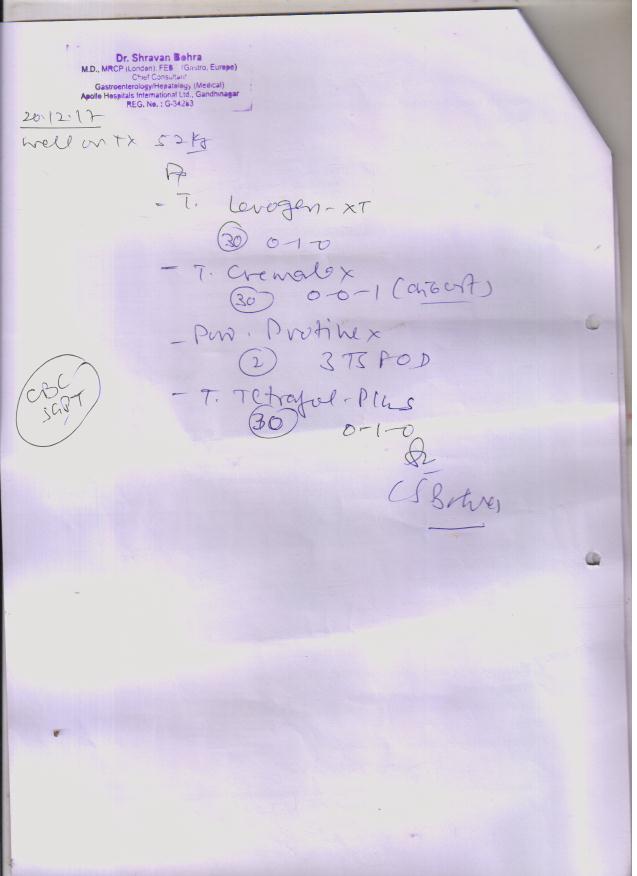 Dr. Shravan Bohra
M.D., MRCP (London), FEB (Gastro, Europe)
Chief Consultant
Gastroenterology/Hepatology (Medical)
Apollo Hospitals International Ltd., Gandhinagar
REG. No. : G-34263
20.12.17
well on Tx 52 kg
Rx
- T. Levogen-XT
30 0-1-0
- T. Cremalax
30 0-0-1
- Pow. Protinex
2 3 TS POD
CBC
SGPT
- T. Tetrafol-Plus
30 0-1-0